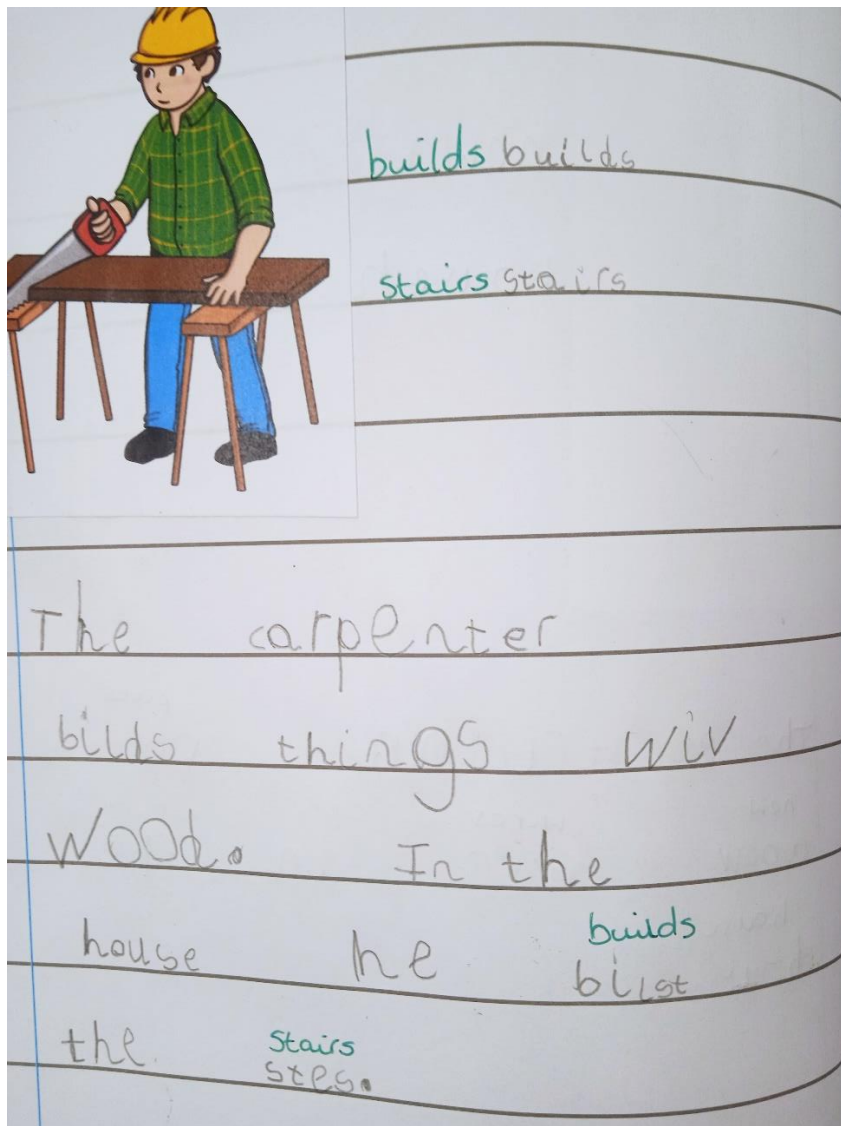 builds builds
stairs stairs
The carpenter
bilds things wiv
wood. In the
builds
house he bilst
the stairs
stes.